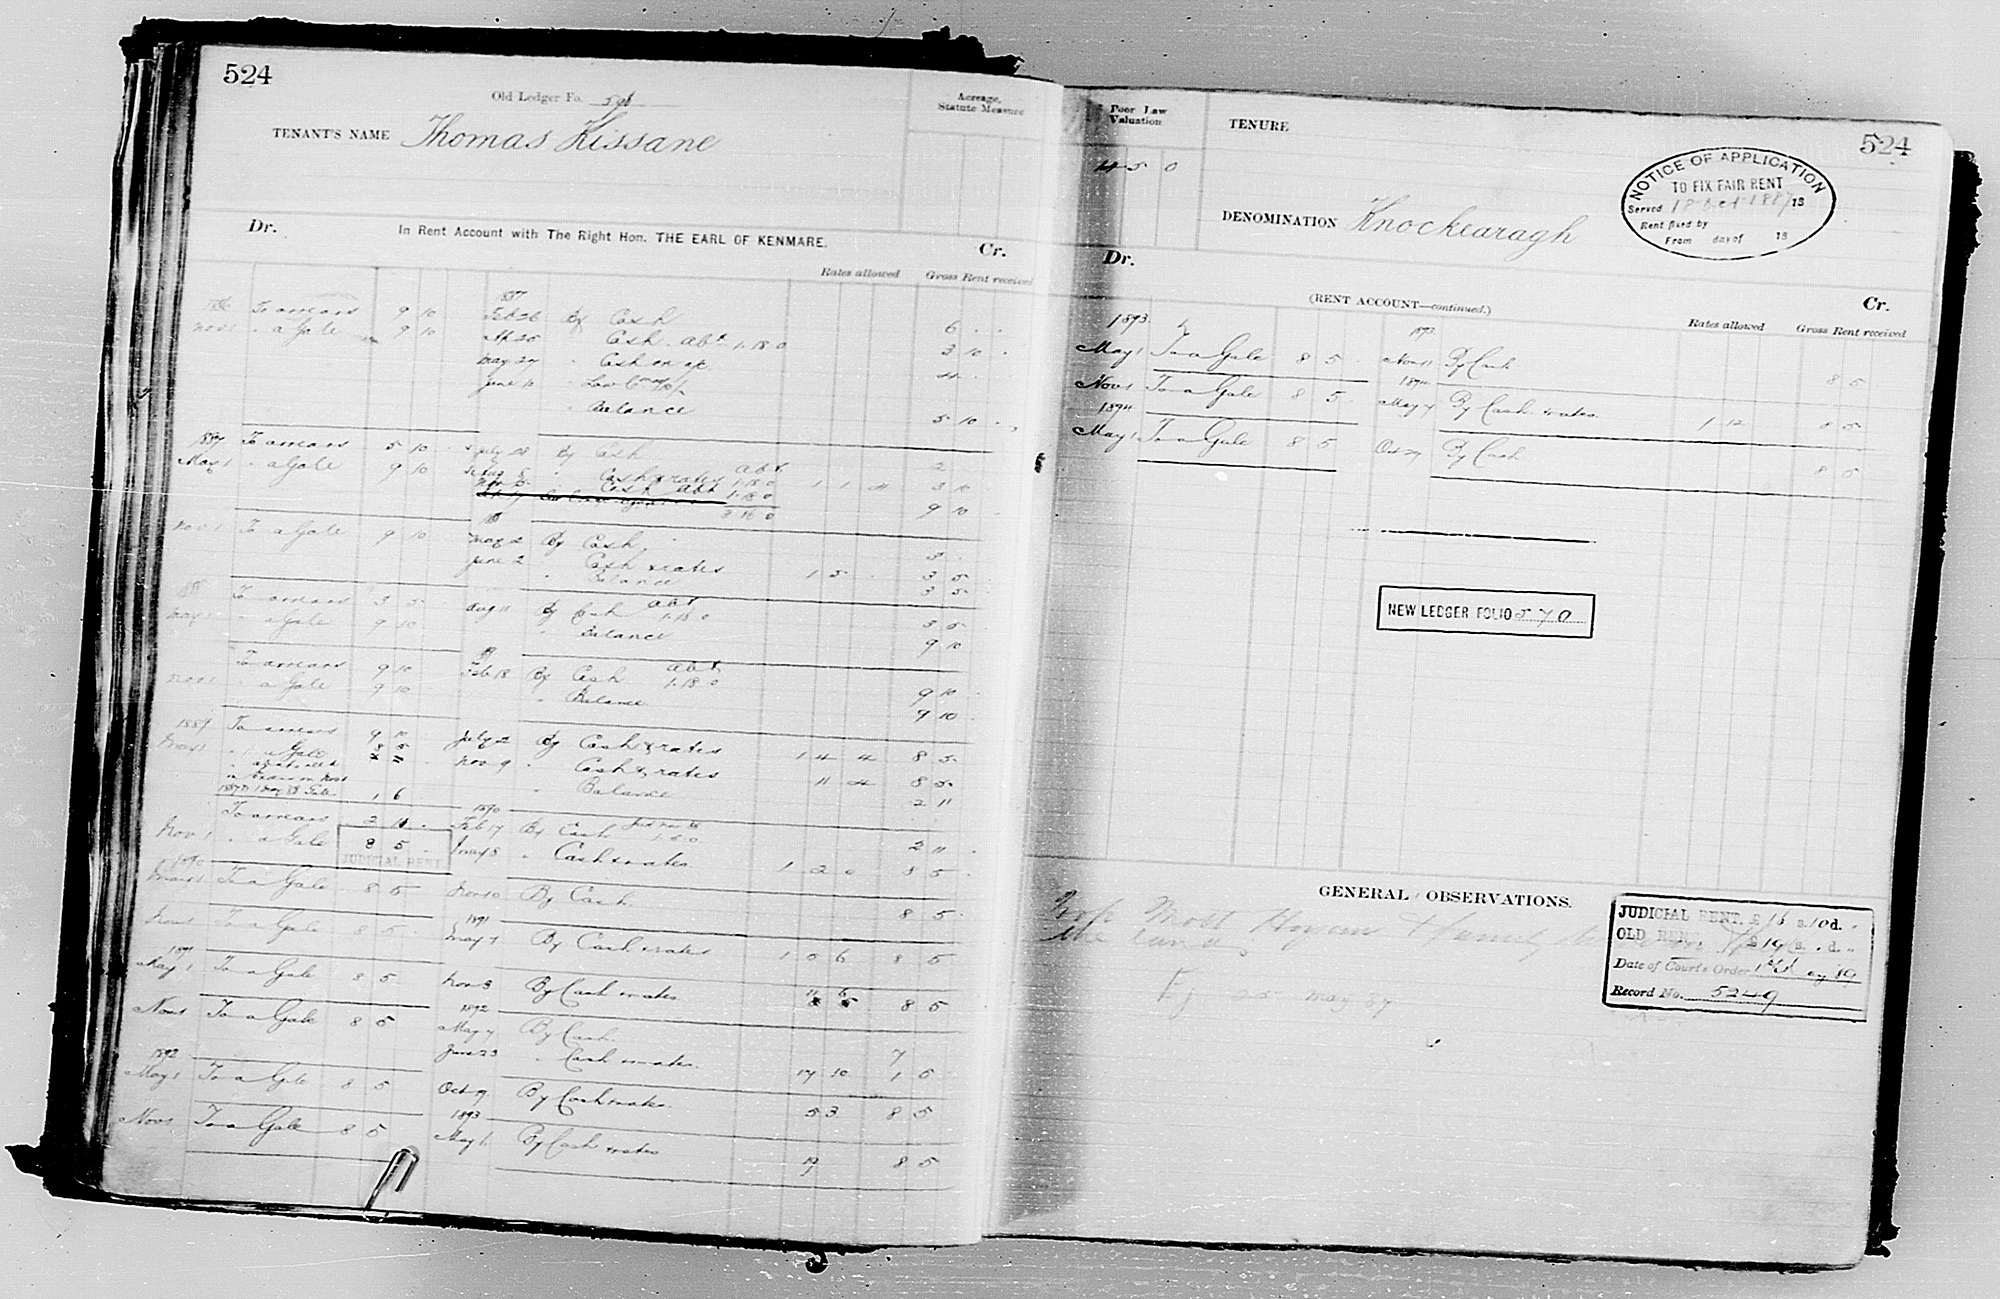 524
Old Ledger Fo.
TENANT'S NAME Thomas Kissane
Acreage,
Statute Measure
Dr. In Rent Account with The Right Hon. THE EARL OF KENMARE. Cr.
Rates allowed Gross Rent received
1886 To arrears 9 10 1887 Feb 26 By Cash 6 . .
Nov 1 " a Gale 9 10 Ap 25 Cash abt 1.18.0 3 10 .
May 27 " Cash on a/c 4 . .
June 10
" Balance 5 10 .
1887 To arrears 5 10 July 28 By Cash 2
May 1 " a Gale 9 10 Aug 8 " Cash & rates abt 1.18.0 1 1 4 3 10
Cash abt 1.18.0
3 16 0 9 10
88
Nov 1 To a Gale 9 10 May 2 By Cash 3 .
June 2 Cash & rates 1 5 . 3 5
" Balance 3 5
88 To arrears 3 5 Aug 11 By Cash abt 1.18.0 3 5
May 1 " a Gale 9 10 " Balance 9 10
89
To arrears 9 10 Feb 18 By Cash abt 1.18.0 9 10
Nov 1 " a Gale 9 10 " Balance 9 10
1889 To arrears 9 10 July 2 By Cash & rates 1 4 4 8 5
May 1 " a Gale 8 5 Nov 9 " Cash & rates 11 4 8 5
" Balance 2 11
1 6
1890
To arrears 2 11 Feb 17 By Cash 2 11
Nov 1 " a Gale 8 5 May 8 " Cash & rates 1 2 0 8 5
JUDICIAL RENT
1890
May 1 To a Gale 8 5 Nov 10 By Cash 8 5
1891
Nov 1 To a Gale 8 5 May 7 By Cash & rates 1 0 6 8 5
1891
May 1 To a Gale 8 5 Nov 3 By Cash & rates 11 6 8 5
1892
Nov 1 To a Gale 8 5 May 7 By Cash 7
June 23 " Cash & rates 17 10 1 5
1892
May 1 To a Gale 8 5 Oct 19 By Cash & rates 5 3 8 5
1893
Nov 1 To a Gale 8 5 May 1 By Cash & rates 19 8 5
Poor Law
Valuation
4 5 0
TENURE
524
DENOMINATION Knockearagh
NOTICE OF APPLICATION
TO FIX FAIR RENT
Served 18 Oct 1887 18
Rent fixed by
From day of 18
Dr. (RENT ACCOUNT—continued.) Cr.
Rates allowed Gross Rent received
1893 1893
May 1 To a Gale 8 5 Nov 11 By Cash 8 5
1894
Nov 1 To a Gale 8 5 May 7 By Cash & rates 1 12 8 5
1894
May 1 To a Gale 8 5 Oct 29 By Cash 8 5
NEW LEDGER FOLIO 570
GENERAL OBSERVATIONS.
the land
Ej 25 May 87
JUDICIAL RENT. £16 s.10 d. "
OLD RENT £19 s. " d. "
Date of Court's Order
Record No. 5249